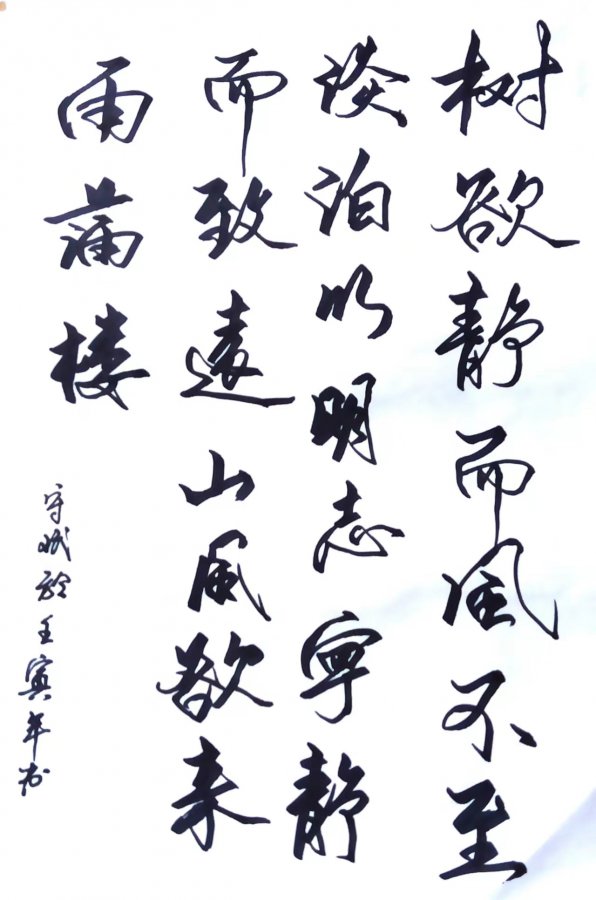 树欲静而風不至
淡泊以明志寧静
而致遠山風欲来
雨满楼
守城於壬寅年书